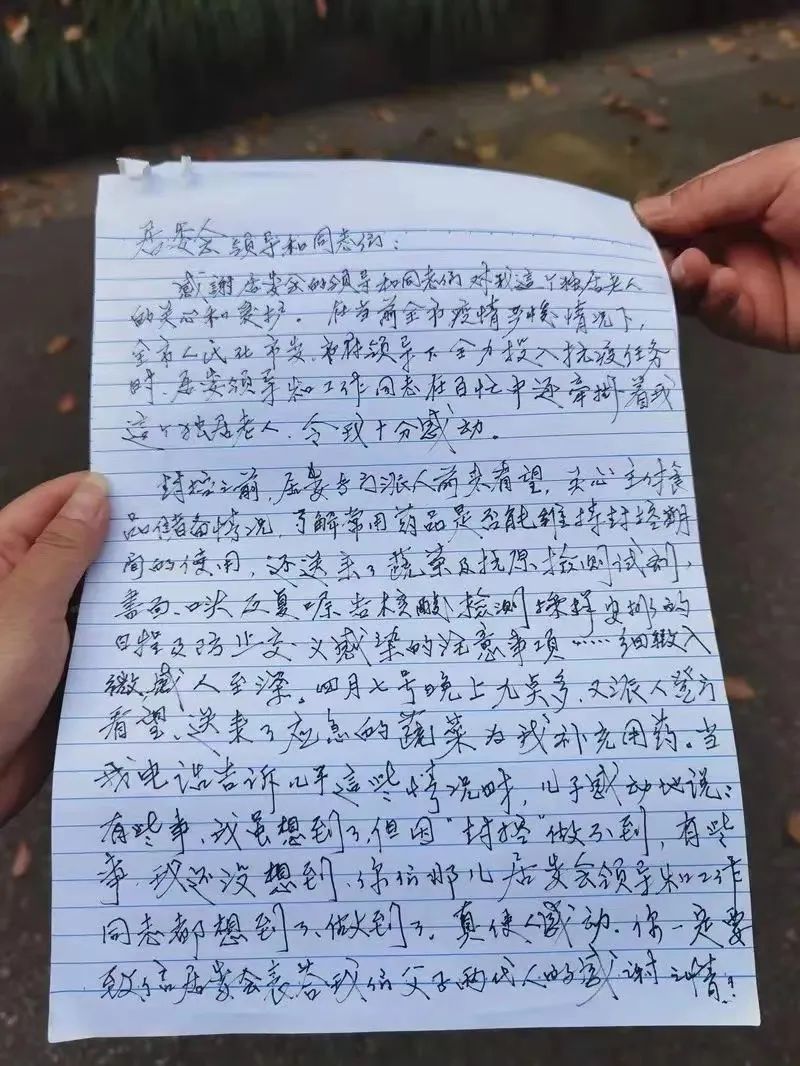 居委会领导和同志们：
感謝居委会的领导和同志们对我這个独居老人
的关心和爱护。在当前全市疫情严峻情况下，
全市人民在市委、市府领导下全力投入抗疫任务
时，居委领导和工作同志在百忙中还牵掛着我
這个独居老人，令我十分感动。
封控之前，居委专门派人前来看望，关心主付食
品储备情况，了解常用药品是否能维持封控期
间的使用，还送来了蔬菜及抗原检测试剂，
書面、口头反复嘱告核酸检测採样安排的
日程及防止交叉感染的注意事項……细致入
微，感人至深。四月七号晚上九点多，又派人登门
看望，送来了应急的蔬菜为我补充用药。当
我电话告诉儿子這些情况时，儿子感动地说：
有些事，我虽想到了，但因“封控”做不到，有些
事，我还没想到，你们那儿居委会领导和工作
同志都想到了、做到了，真使人感动，你一定要
致信居委会表答我们父子两代人的感谢之情！